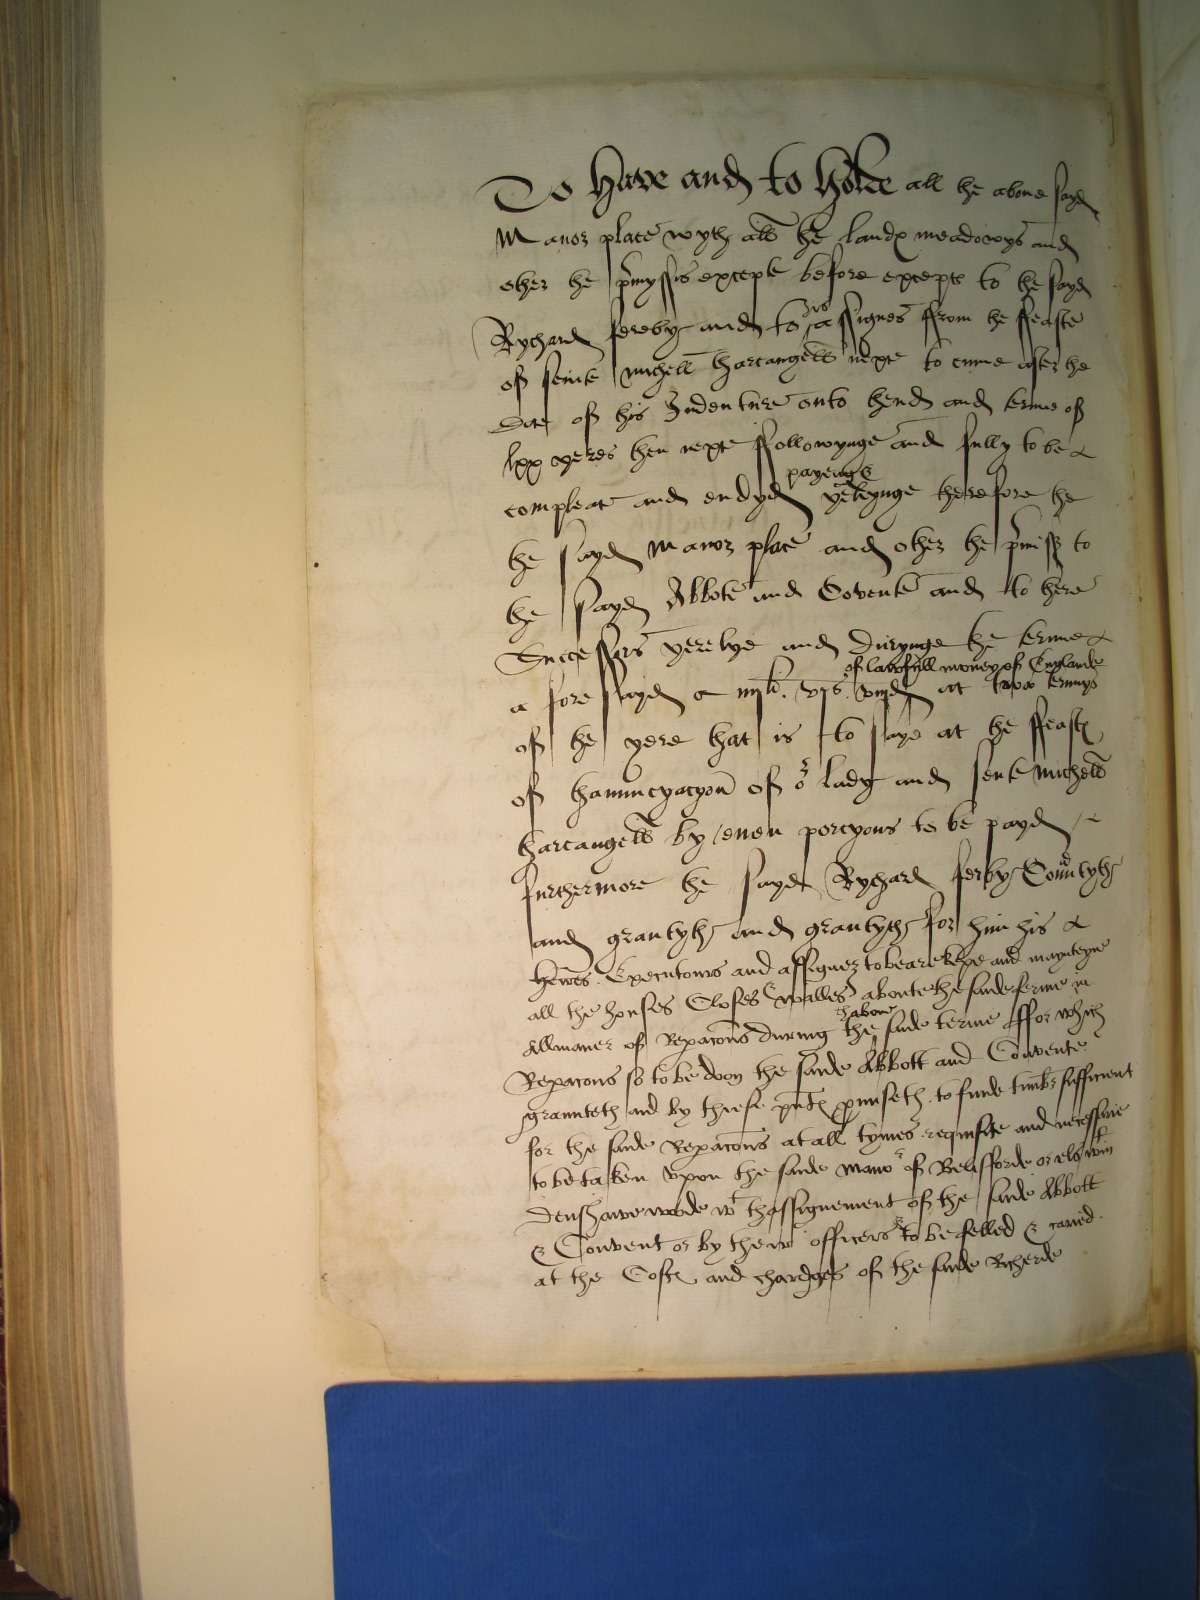 To Have and to holde all he abone sayd
Manor place wyth all he landꝭ meadowys and
other he p̄myssis except before except to he sayd
Rychard fereby and to his assignes ffrom he ffeaste
of seint michell harcangell next to cume after he
Date of his Indenture onto hend and terme of
lxx yeres then next ffollowynge and fully to be
compleat and endyd payeng & yeldynge therefore he
he sayd Manor place and other he p̄missꝭ to
he sayd Abbote and Covente and to there
Successors yerelye and durynge he terme
a fore sayd iiij li. vj s. viij d of lawfull money of Englande at two termys
of he yere that is to saye at he ffeastꝭ
of hanuncyacyon of oʳ lady and sent michell
harcangell by even porcyons to be payd
furthermore he sayd Rychard ferby Couuntyth
and grantyth and grantyth for him his
heires Executours and assignez to beare kepe and maynteyne
all the houses Closes & walles aboute the saide ferme in
all maner of Repacōns during the habone saide terme ffor which
Repacōns so to be doon the saide Abbott and Convente
graunteth and by thiese pn̄tꝭ ꝓmiseth to finde timbr̄ sufficient
for the saide Repacōns at all tymes requisite and necessarie
to be taken vpon the saide manoʳ of Belisforde or els wᵗin
Denshawe woode wᵗ thassignement of the saide Abbott
& Convent or by their officers to be felled & caried
at the Costꝭ and chardges of the saide Richerde